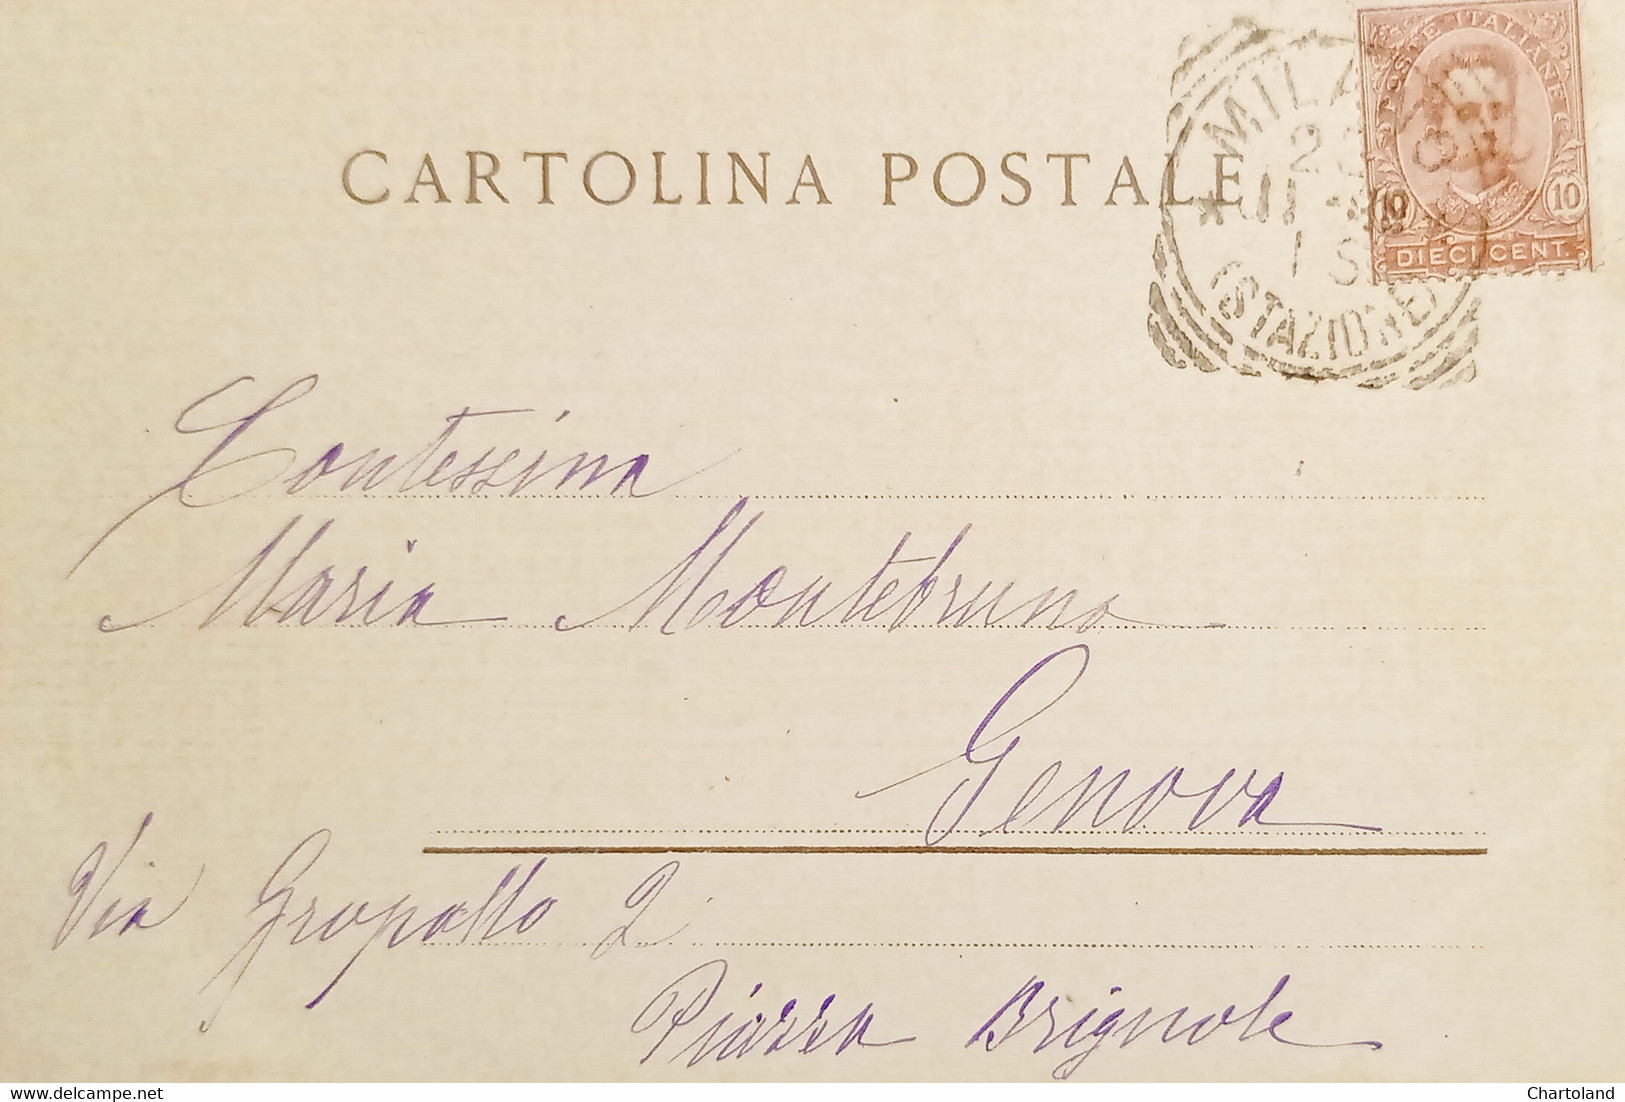 CARTOLINA POSTALE
MILA
(STAZIONE)
POSTE ITALIANE
10 10
DIECI CENT.
Contessina
Maria Montebruno
Genova
Via Gropallo 2
Piazza Brignole
delcampe.net
Chartoland